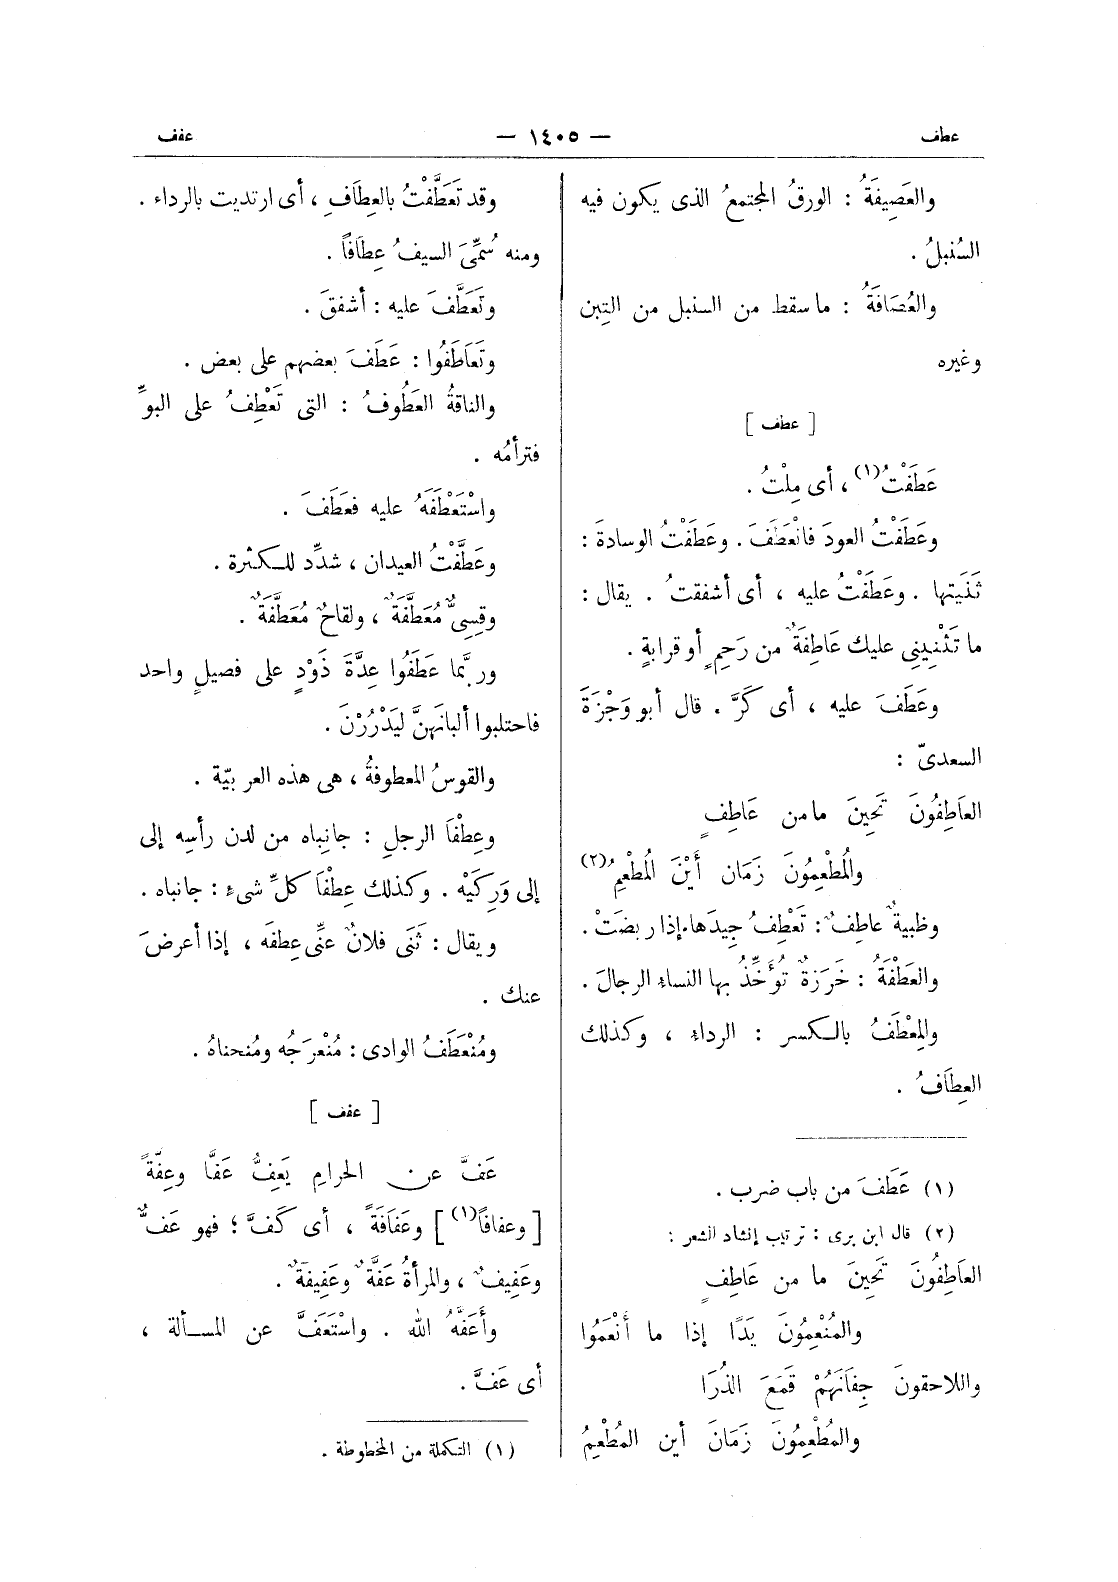 عطف — ١٤٠٥ — عفف
والعَصِيفَةُ : الورقُ المجتمعُ الذى يكون فيه
السُنبلُ .
والعُصَافَةُ : ما سقط من السنبل من التِبن
وغيره
[ عطف ]
عَطَفْتُ(١) ، أى مِلْتُ .
وعَطَفْتُ العودَ فانْعَطَفَ . وعَطَفْتُ الوسادةَ :
ثَنَيتها . وعَطَفْتُ عليه ، أى أشفقتُ . يقال :
ما تَثْنِينِى عليك عَاطِفَةٌ من رَحِمٍ أو قرابةٍ .
وعَطَفَ عليه ، أى كَرَّ . قال أبو وَجْزَةَ
السعدىّ :
العَاطِفُونَ تَحِينَ ما من عَاطِفٍ
والمُطْعِمُونَ زَمَان أَيْنَ المُطْعِمُ(٢)
وظبيةٌ عاطِفٌ : تَعْطِفُ جِيدَها إذا ربضَتْ .
والعَطْفَةُ : خَرَزةٌ تُؤَخِّذُ بها النساء الرجالَ .
والمِعْطَفُ بالكسر : الرداء ، وكذلك
العِطَافُ .
(١) عَطَفَ من باب ضرب .
(٢) قال ابن برى : ترتيب إنشاد الشعر :
العَاطِفُونَ تَحِينَ ما من عَاطِفٍ
والمُنْعِمُونَ يَدًا إذا ما أَنْعَمُوا
واللاحقونَ جِفَانَهُمْ قَمَعَ الذُرَا
والمُطْعِمُونَ زَمَانَ أين المُطْعِمُ
وقد تَعَطَّفْتُ بالعِطَافِ ، أى ارتديت بالرداء .
ومنه سُمِّىَ السيفُ عِطَافاً .
وتَعَطَّفَ عليه : أشفقَ .
وتَعَاطَفُوا : عَطَفَ بعضهم على بعض .
والناقةُ العَطُوفُ : التى تَعْطِفُ على البوِّ
فترأمُه .
واسْتَعْطَفَهُ عليه فعَطَفَ .
وعَطَّفْتُ العيدان ، شدِّد للكثرة .
وقِسِىٌّ مُعَطَّفَةٌ ، ولقاحٌ مُعَطَّفَةٌ .
وربَّما عَطَفُوا عِدَّةَ ذَوْدٍ على فصيلٍ واحد
فاحتلبوا ألبانَهنَّ لِيَدْرُرْنَ .
والقوسُ المعطوفةُ ، هى هذه العربيّة .
وعِطْفَا الرجلِ : جانِباه من لدن رأسِه إلى
إلى وَرِكَيْه . وكذلك عِطْفَا كلِّ شىء : جانباه .
ويقال : ثَنَى فلانٌ عنِّى عِطفَه ، إذا أعرضَ
عنك .
ومُنْعَطَفُ الوادى : مُنْعرَجُه ومُنحناهُ .
[ عفف ]
عَفَّ عن الحرامِ يَعِفُّ عَفًّا وعِفَّةً
[ وعفافاً(١) ] وعَفَافَةً ، أى كَفَّ ؛ فهو عَفٌّ
وعَفِيفٌ ، والمرأةُ عَفَّةٌ وعَفِيفَةٌ .
وأَعَفَّهُ الله . واسْتَعَفَّ عن المسألة ،
أى عَفَّ .
(١) التكملة من المخطوطة .